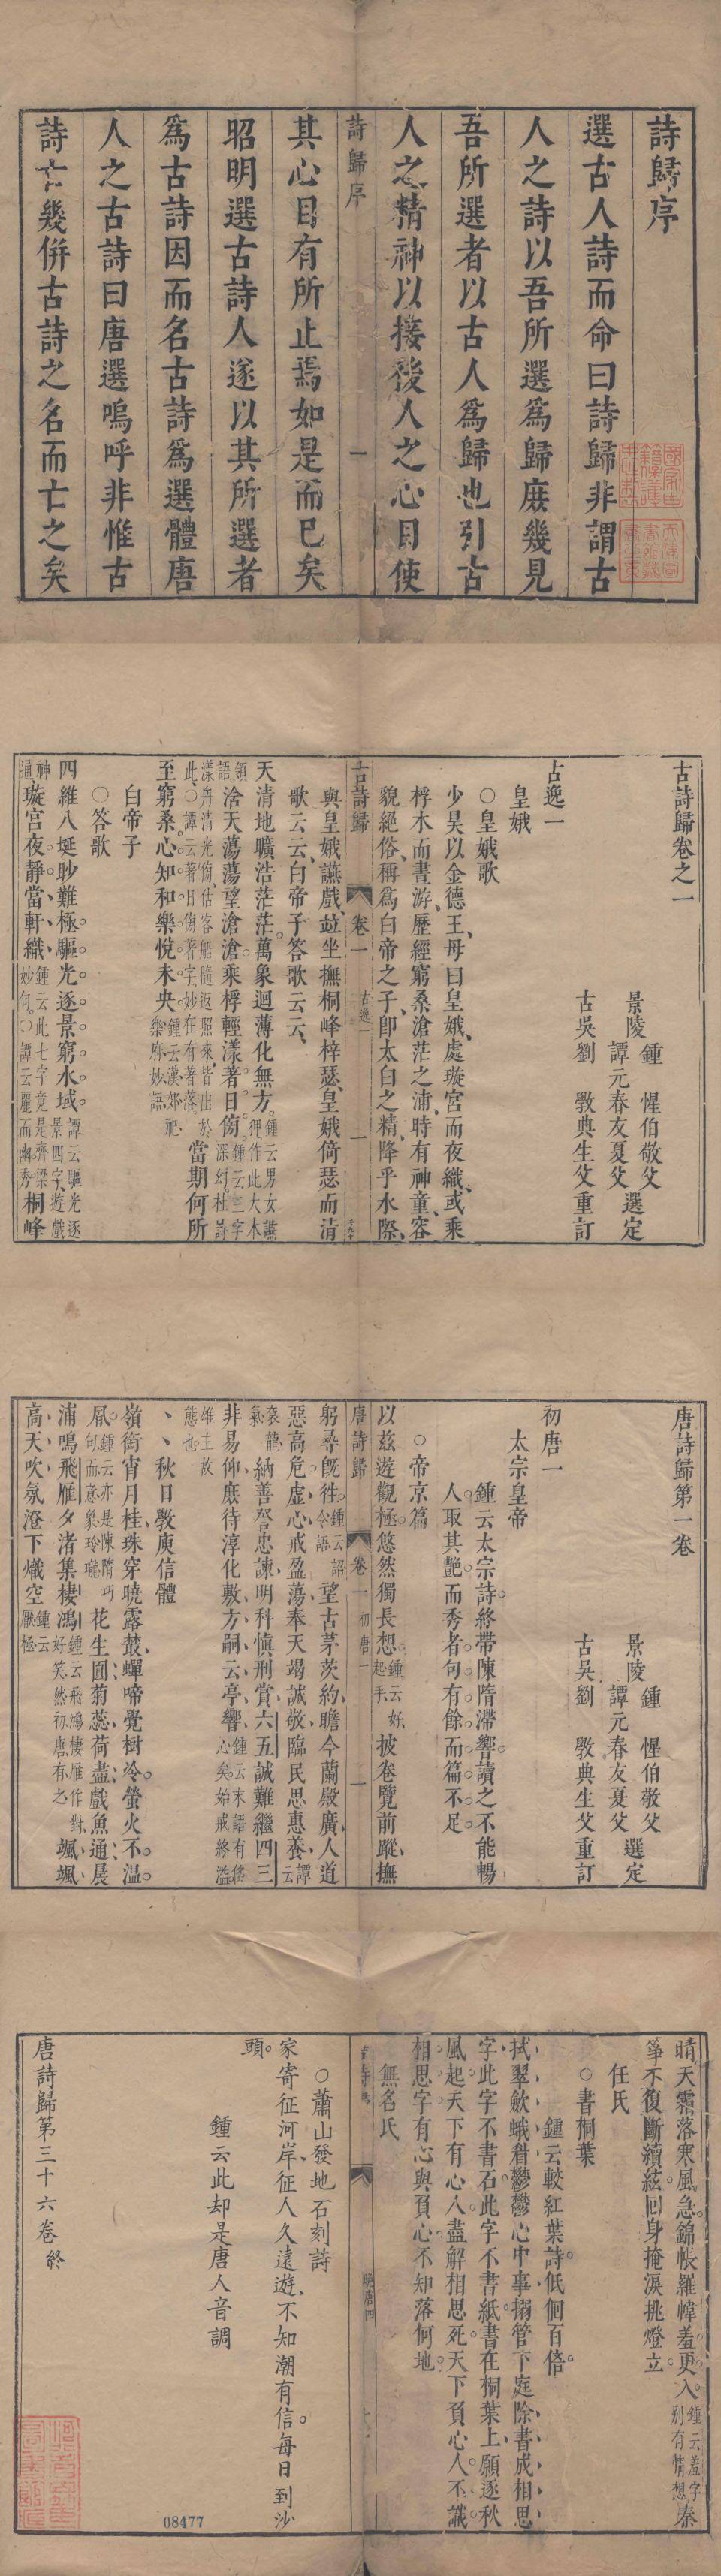 詩歸序
選古人詩而命曰詩歸非謂古
人之詩以吾所選為歸庶幾見
吾所選者以古人為歸也引古
人之精神以接後人之心目使
詩歸序
一
其心目有所止焉如是而已矣
昭明選古詩人遂以其所選者
為古詩因而名古詩為選體唐
人之古詩曰唐選嗚呼非惟古
詩亡幾併古詩之名而亡之矣
古詩歸卷之一
景陵 鍾 惺伯敬父
譚元春友夏父 選定
古吳劉 斆典生父重訂
古逸一
皇娥
○皇娥歌
少昊以金德王母曰皇娥處璇宮而夜織或乘
桴木而晝游歷經窮桑滄茫之浦時有神童容
貌絕俗稱為白帝之子卽太白之精降乎水際
古詩歸 卷一 古逸一 一
與皇娥讌戲並坐撫桐峰梓瑟皇娥倚瑟而清
歌云云白帝子答歌云云
天清地曠浩茫茫萬象迴薄化無方鍾云男女讌狎作此大本
領語洽天蕩蕩望滄滄乘桴輕漾著日傍鍾云三字深幻杜詩
漾舟清光傍估客船隨返照來皆出於此○譚云著日傍著字妙在有著落當期何所
至窮桑心知和樂悅未央鍾云漢郊祀樂府妙語
白帝子
○答歌
四維八埏眇難極驅光逐景窮水域譚云驅光逐景四字遊戲
神通璇宮夜靜當軒織鍾云此七字竟是齊梁妙句○譚云麗而幽秀桐峰
唐詩歸第一卷
景陵 鍾 惺伯敬父
譚元春友夏父 選定
古吳劉 斆典生父重訂
初唐一
太宗皇帝
鍾云太宗詩終帶陳隋滯響讀之不能暢
人取其艷而秀者句有餘而篇不足
○帝京篇
以茲遊觀極悠然獨長想鍾云好起手披卷覽前蹤撫
唐詩歸 卷一 初唐一 一
躬尋旣往鍾云詔令語望古茅茨約瞻今蘭殿廣人道
惡高危虛心戒盈蕩奉天竭誠敬臨民思惠養譚云
袞龍氣納善詧忠諫明科慎刑賞六五誠難繼四三
非易仰庶待淳化敷方嗣云亭響鍾云末語有倦心矣始戒終濫
雄主故態也
、、秋日斆庾信體
嶺銜宵月桂珠穿曉露叢蟬啼覺樹冷螢火不溫
風鍾云亦是陳隋巧句而意象玲瓏花生圓菊蕊荷盡戲魚通晨
浦鳴飛雁夕渚集棲鴻鍾云飛鴻棲雁作對好笑然初唐有之颯颯
高天吹氛澄下熾空鍾云厭極
晴天霜落寒風急錦帳羅幃羞更入鍾云羞字別有情想秦
箏不復斷續絃回身掩淚挑燈立
任氏
○書桐葉
鍾云較紅葉詩低徊百倍
拭翠歛蛾眉鬱鬱心中事搦管下庭除書成相思
字此字不書石此字不書紙書在桐葉上願逐秋
風起天下有心人盡解相思死天下負心人不識
相思字有心與負心不知落何地
無名氏
晚唐四
○蕭山發地石刻詩
家寄征河岸征人久遠遊不知潮有信每日到沙
頭
鍾云此却是唐人音調
唐詩歸第三十六卷終
08477